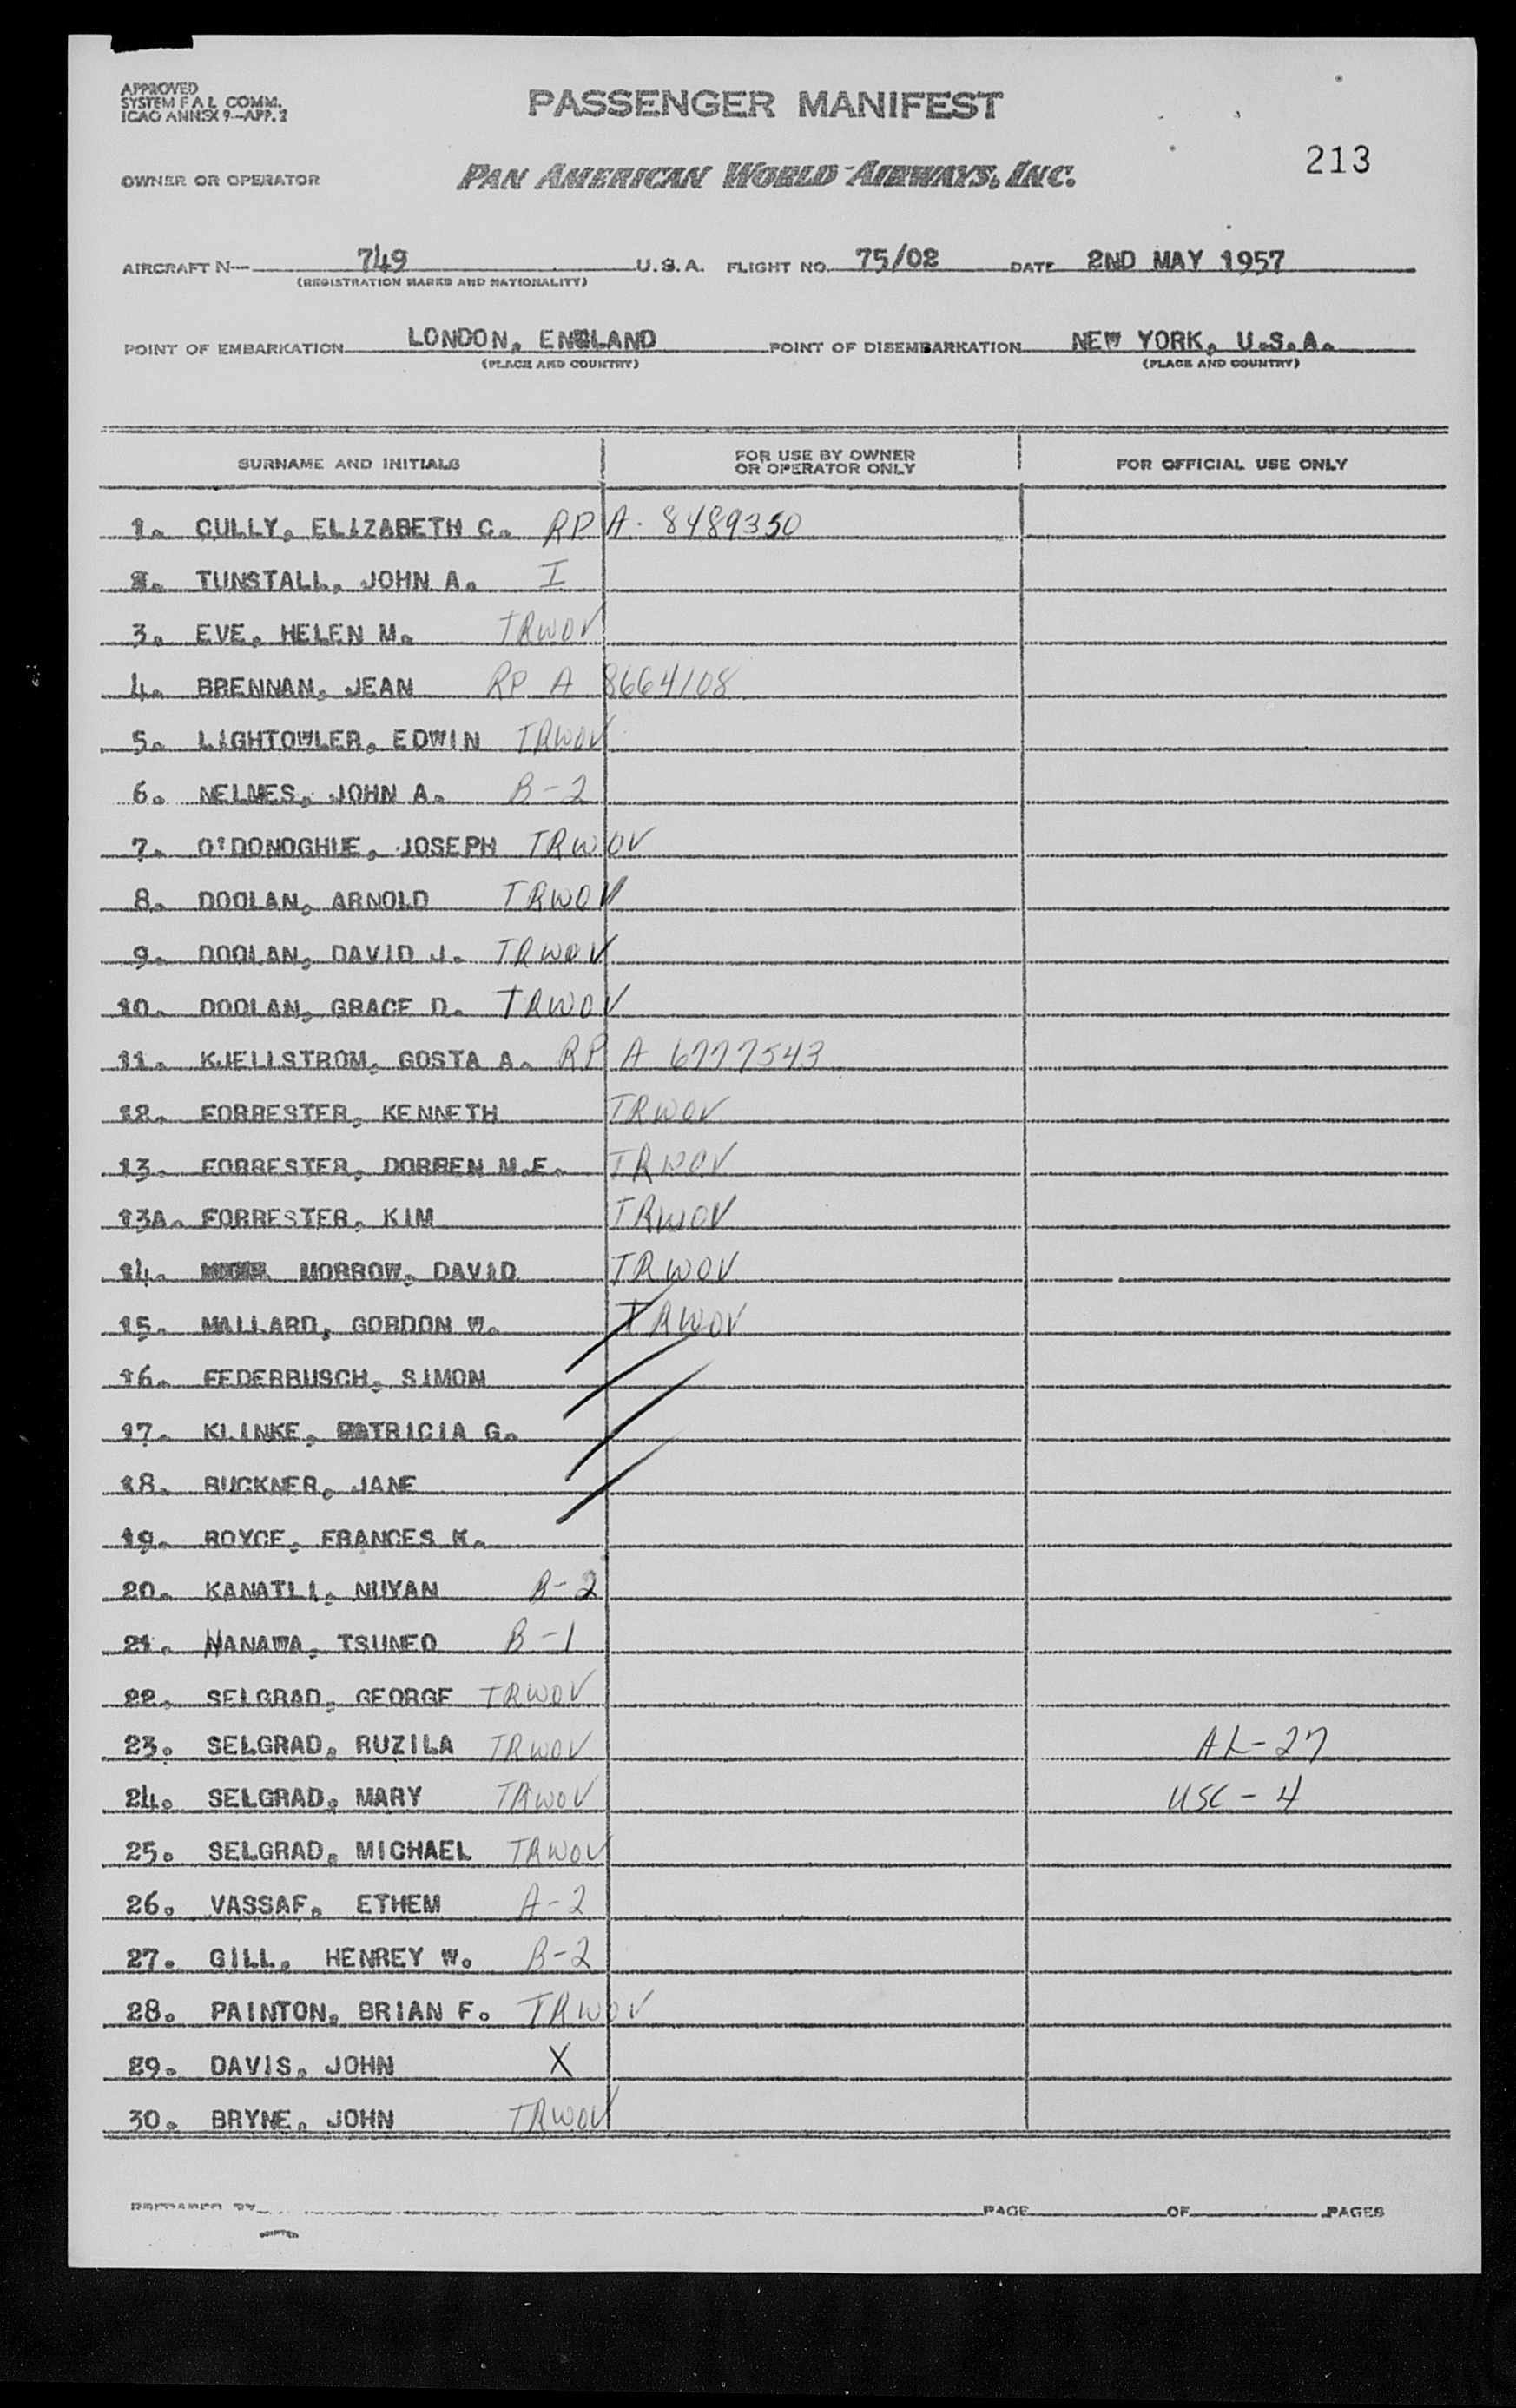 APPROVED
SYSTEM F A L COMM.
ICAO ANNEX 9—APP. 2
PASSENGER MANIFEST
213
OWNER OR OPERATOR PAN AMERICAN WORLD AIRWAYS, INC.
AIRCRAFT N— 749 U.S.A. FLIGHT NO. 75/02 DATE 2ND MAY 1957
(REGISTRATION MARKS AND NATIONALITY)
POINT OF EMBARKATION LONDON, ENGLAND POINT OF DISEMBARKATION NEW YORK, U.S.A.
(PLACE AND COUNTRY) (PLACE AND COUNTRY)
SURNAME AND INITIALS FOR USE BY OWNER OR OPERATOR ONLY FOR OFFICIAL USE ONLY
1. CULLY, ELIZABETH C. RP A- 8489350
2. TUNSTALL, JOHN A. I
3. EVE, HELEN M. TRWOV
4. BRENNAN, JEAN RP A 8664108
5. LIGHTOWLER, EDWIN TRWOV
6. NELMES, JOHN A. B-2
7. O'DONOGHUE, JOSEPH TRWOV
8. DOOLAN, ARNOLD TRWOV
9. DOOLAN, DAVID J. TRWOV
10. DOOLAN, GRACE D. TRWOV
11. KJELLSTROM, GOSTA A. RP A 6777543
12. FORRESTER, KENNETH TRWOV
13. FORRESTER, DORREN M.E. TRWOV
13A. FORRESTER, KIM TRWOV
14. MORROW, DAVID TRWOV
15. MALLARD, GORDON W. TRWOV
16. FEDERBUSCH, SIMON
17. KLINKE, PATRICIA G.
18. BUCKNER, JANE
19. ROYCE, FRANCES K.
20. KANATLI, NUYAN B-2
21. HANAWA, TSUNEO B-1
22. SELGRAD, GEORGE TRWOV
23. SELGRAD, RUZILA TRWOV AL-27
24. SELGRAD, MARY TRWOV USC-4
25. SELGRAD, MICHAEL TRWOV
26. VASSAF, ETHEM A-2
27. GILL, HENREY W. B-2
28. PAINTON, BRIAN F. TRWOV
29. DAVIS, JOHN X
30. BRYNE, JOHN TRWOV
PREPARED BY PAGE OF PAGES